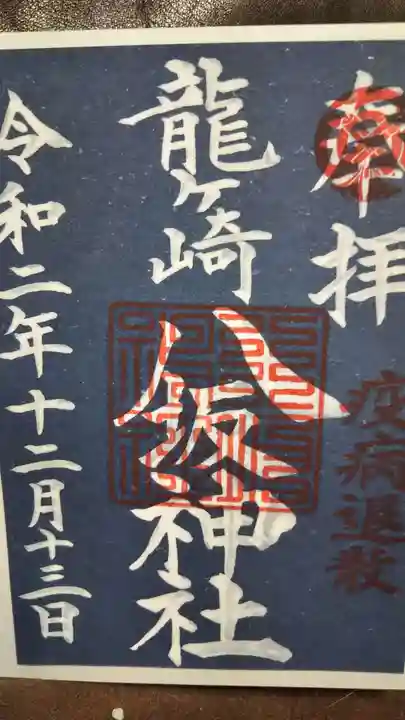 奉拝
疫病退散
龍ケ崎
八坂神社
令和二年十二月十三日